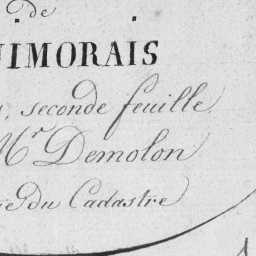 de
IMORAIS
seconde feuille
Mr Demolon
du Cadastre